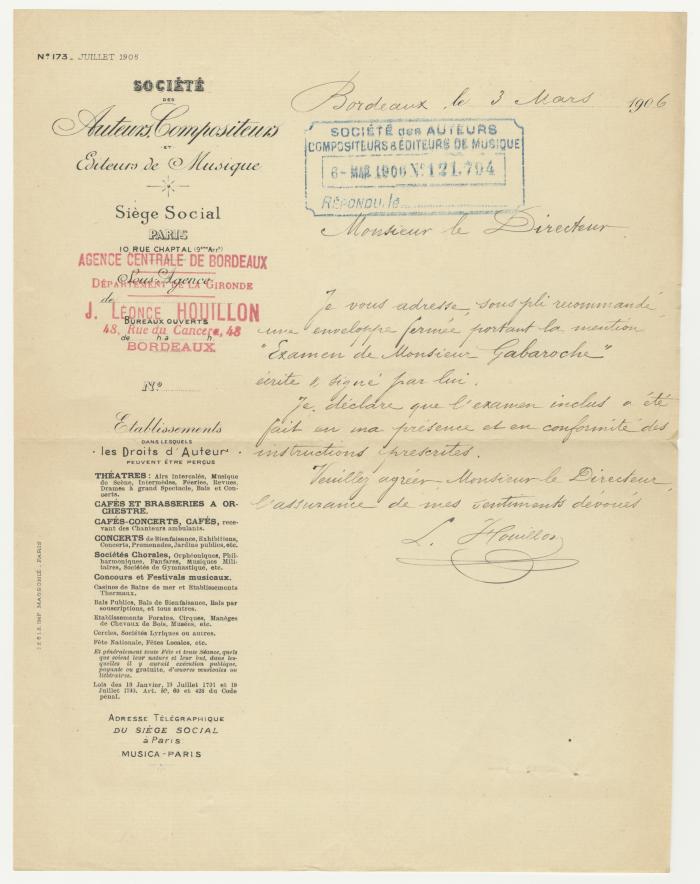 Nº 173_ JUILLET 1905
SOCIÉTÉ
DES
Auteurs, Compositeurs
ET
Editeurs de Musique
Siège Social
PARIS
10 RUE CHAPTAL (9ème Arrt)
AGENCE CENTRALE DE BORDEAUX
Sous-Agence
DÉPARTEMENT DE LA GIRONDE
de
J. LÉONCE HOUILLON
BUREAUX OUVERTS
48, Rue du Cancera, 48
de h à h.
BORDEAUX
Nº
Etablissements
DANS LESQUELS
les Droits d'Auteur
PEUVENT ÊTRE PERÇUS
THÉATRES: Airs intercalés, Musique
de Scène, Intermèdes, Féeries, Revues,
Drames à grand Spectacle, Bals et Con-
certs.
CAFÉS ET BRASSERIES A OR-
CHESTRE.
CAFÉS-CONCERTS, CAFÉS, rece-
vant des Chanteurs ambulants.
CONCERTS de Bienfaisance, Exhibitions,
Concerts, Promenades, Jardins publics, etc.
Sociétés Chorales, Orphéoniques, Phil-
harmoniques, Fanfares, Musiques Mili-
taires, Sociétés de Gymnastique, etc.
Concours et Festivals musicaux.
Casinos de Bains de mer et Etablissements
Thermaux.
Bals Publics, Bals de Bienfaisance, Bals par
souscriptions, et tous autres.
Etablissements Forains, Cirques, Manèges
de Chevaux de Bois, Musées, etc.
Cercles, Sociétés Lyriques ou autres.
Fête Nationale, Fêtes Locales, etc.
Et généralement toute Fête et toute Séance, quels
que soient leur nature et leur but, dans les-
quelles il y aurait exécution publique,
payante ou gratuite, d'œuvres musicales ou
littéraires.
Lois des 13 Janvier, 19 Juillet 1791 et 19
Juillet 1793. Art. 60 et 428 du Code
pénal.
ADRESSE TÉLÉGRAPHIQUE
DU SIÈGE SOCIAL
à Paris
MUSICA-PARIS
IMP. MAGGONIÉ. PARIS
Bordeaux, le 3 Mars 1906
SOCIÉTÉ des AUTEURS
COMPOSITEURS & ÉDITEURS DE MUSIQUE
6- MAR. 1906 Nº 121.794
RÉPONDU, le
Monsieur le Directeur
Je vous adresse, sous pli recommandé,
une enveloppe fermée portant la mention
"Examen de Monsieur Gabaroche"
écrite & signé par lui.
Je déclare que l'examen inclus a été
fait en ma présence et en conformité des
instructions prescrites.
Veuillez agréer Monsieur le Directeur,
l'assurance de mes sentiments dévoués
L. Houillon